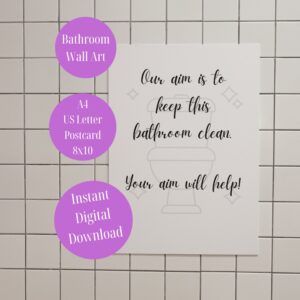 Bathroom
Wall Art
A4
US Letter
Postcard
8x10
Instant
Digital
Download
Our aim is to
keep this
bathroom clean.
Your aim will help!